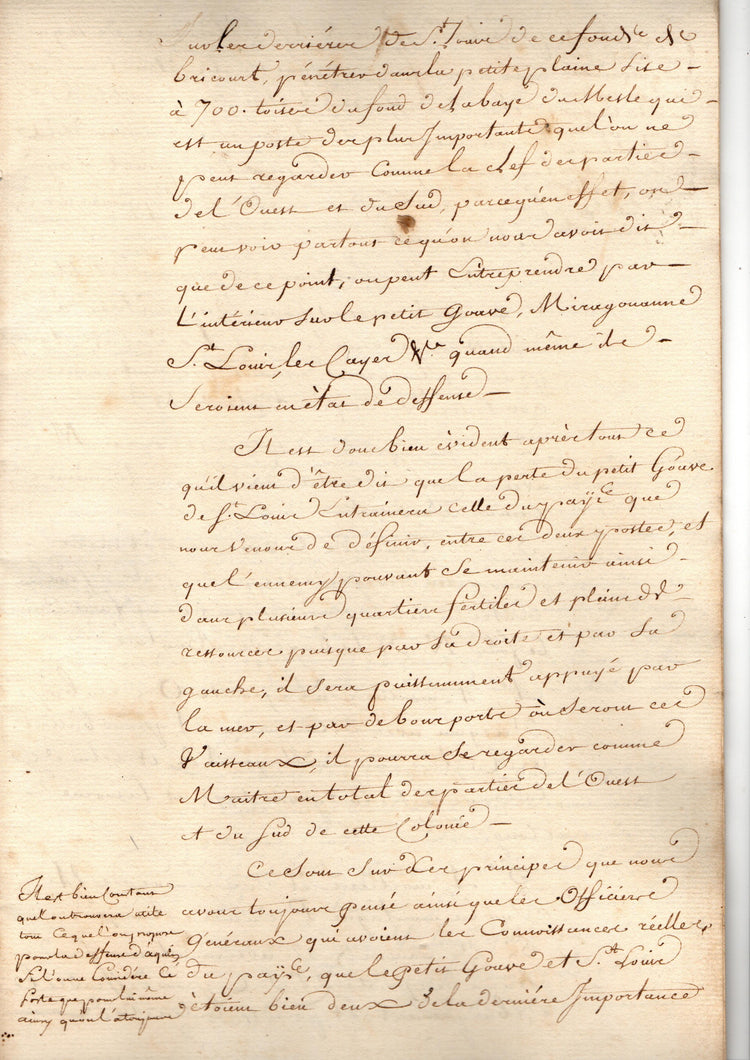 Sur les derriéres de St. Louis de ce fond de &
bricourt, pénétrer dans la petite plaine sise
à 700. toises du fond de la baye du Mesle qui
est un poste des plus Importants que l'on ne
peut regarder Comme la clef des parties
de l'Ouest et du Sud, parcequ'en effet, on
peut voir partout ce qu'on nous avoit dit
que de ce point, on peut Entreprendre par
L'intérieur sur le petit Goave, Miragouanne
St. Louis, les Cayes &a. quand même ils
seroient en ètat de deffense
Il est donc bien èvident après tout ce
qu'il vient d'être dit que la perte du petit Goave
de St. Louis Entrainera celle du païs que
nous venons de définir, entre ces deux postes, et
que l'ennemy pouvant se maintenir ainsi
dans plusieurs quartiers fertiles et plains de
ressources puisque par la droite et par la
gauche, il sera puissamment appuyé par
la mer, et par de bons ports où seront ces
Vaisseaux, il pourra se regarder comme
Maitre en total des parties de l'Ouest
et du Sud de cette Colonie
Ce sont sur les principes que nous
avons toujours pensé ainsi que les Officiers
Généraux qui avoient les Connoissances réelles
du païs, que le petit Goave et St. Louis
ètoient bien deux de la derniére Importance
Il est bien Constant
quel'on trouvera utile
tout ce que l'on propose
pour la deffense d'aquin
Si l'on ne Considére ce
Poste que pour lui même
ainsy qu'on l'a toujours